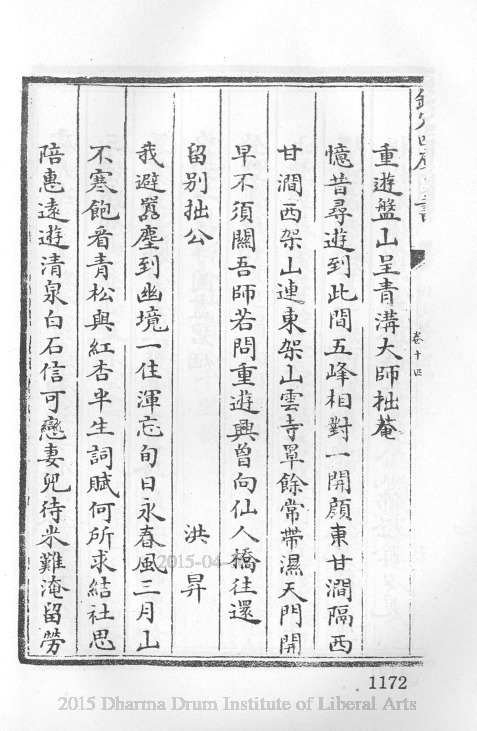 欽定四庫全書
卷十四
重遊盤山呈青溝大師拙菴
憶昔尋遊到此間五峰相對一開顔東甘澗隔西
甘澗西架山連東架山雲寺單餘常帶濕天門開
早不須關吾師若問重遊興曾向仙人橋往還
留别拙公 洪昇
我避囂塵到幽境一住渾忘旬日永春風三月山
不寒飽看青松與紅杏半生詞賦何所求結社思
陪惠遠遊清泉白石信可戀妻兒待米難淹留勞
1172
2015-04-
2015 Dharma Drum Institute of Liberal Arts